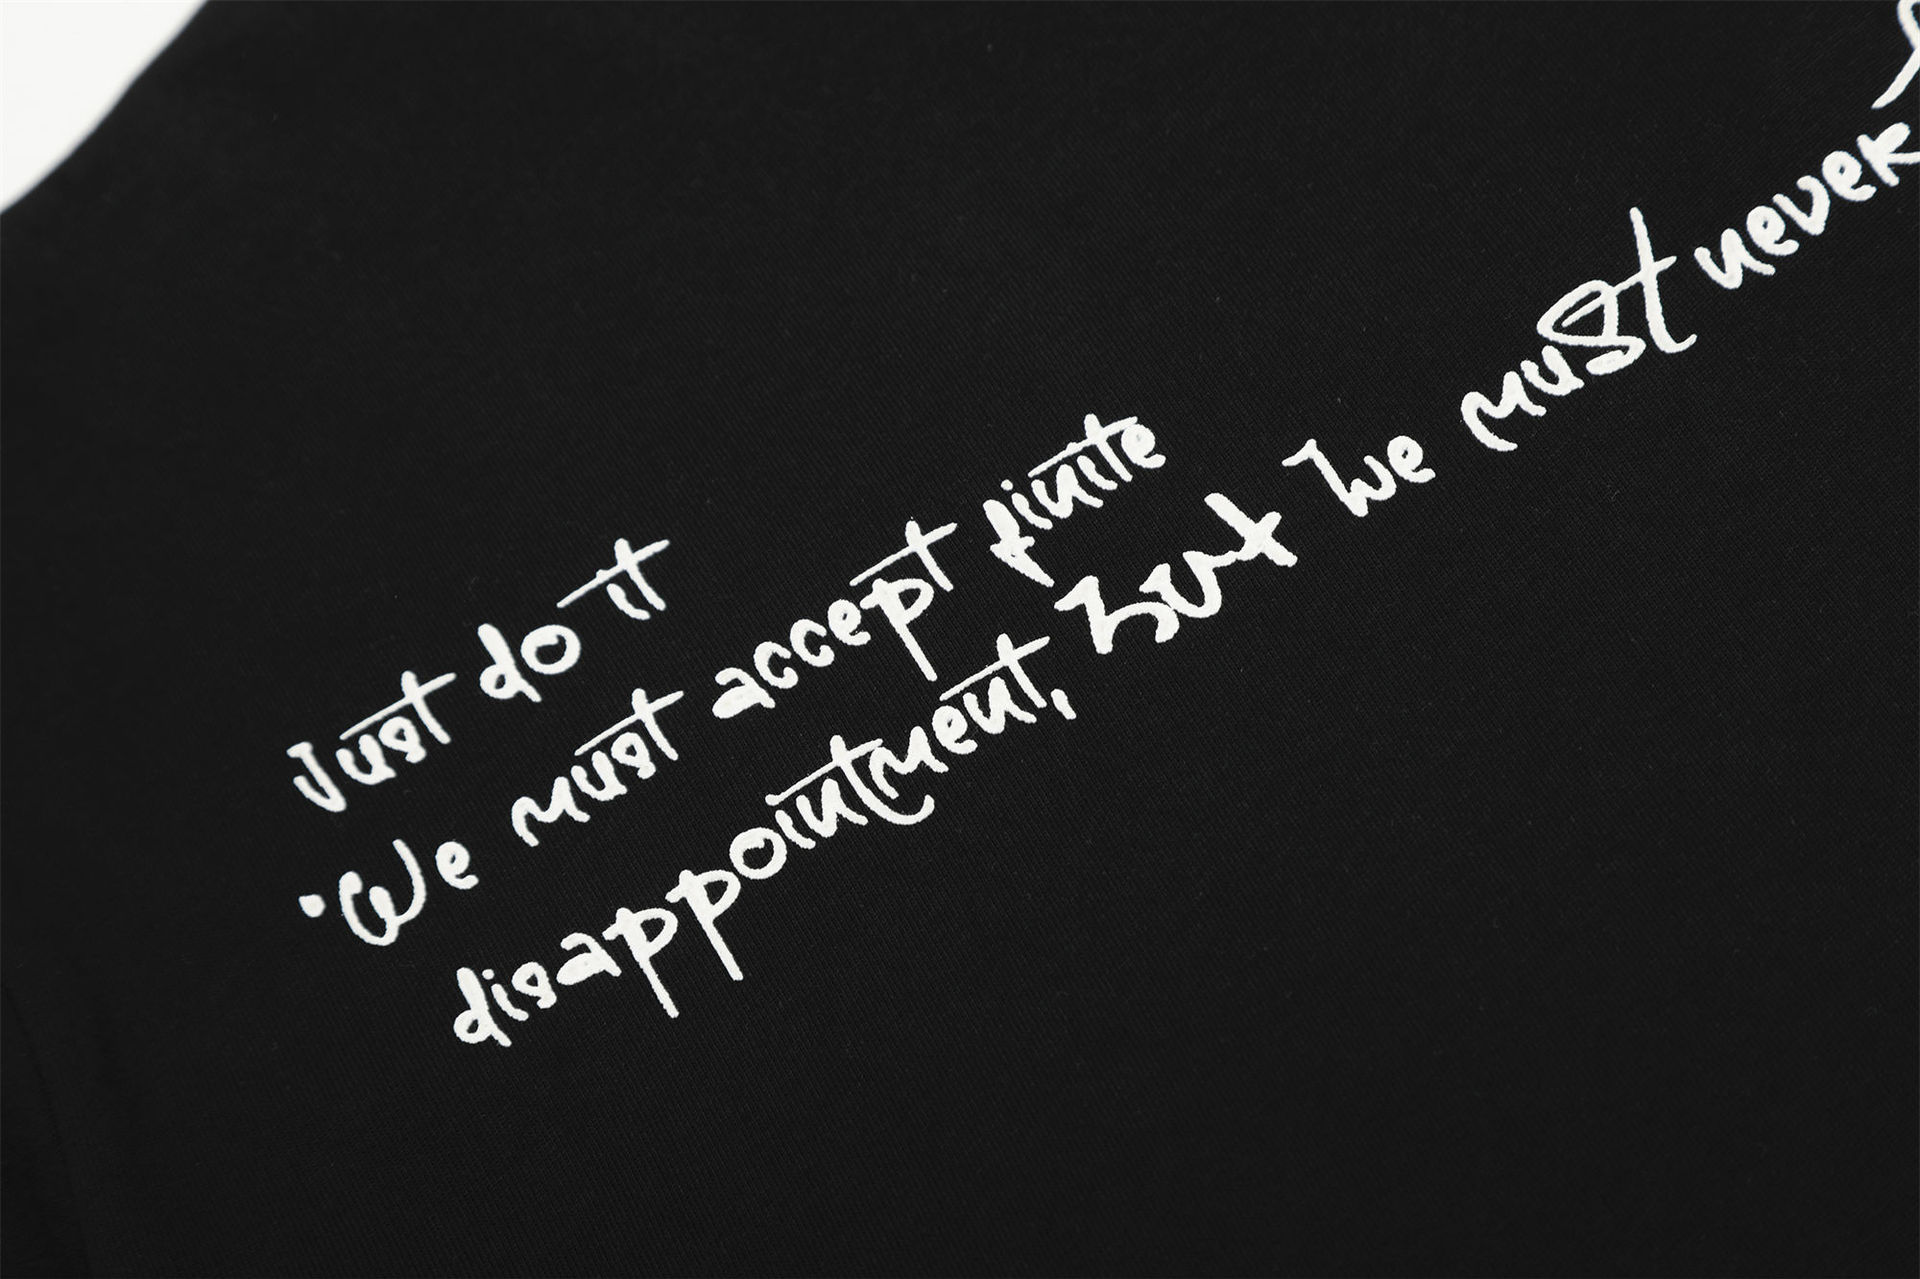 Just do it
"We must accept finite
disappointment, but we must never